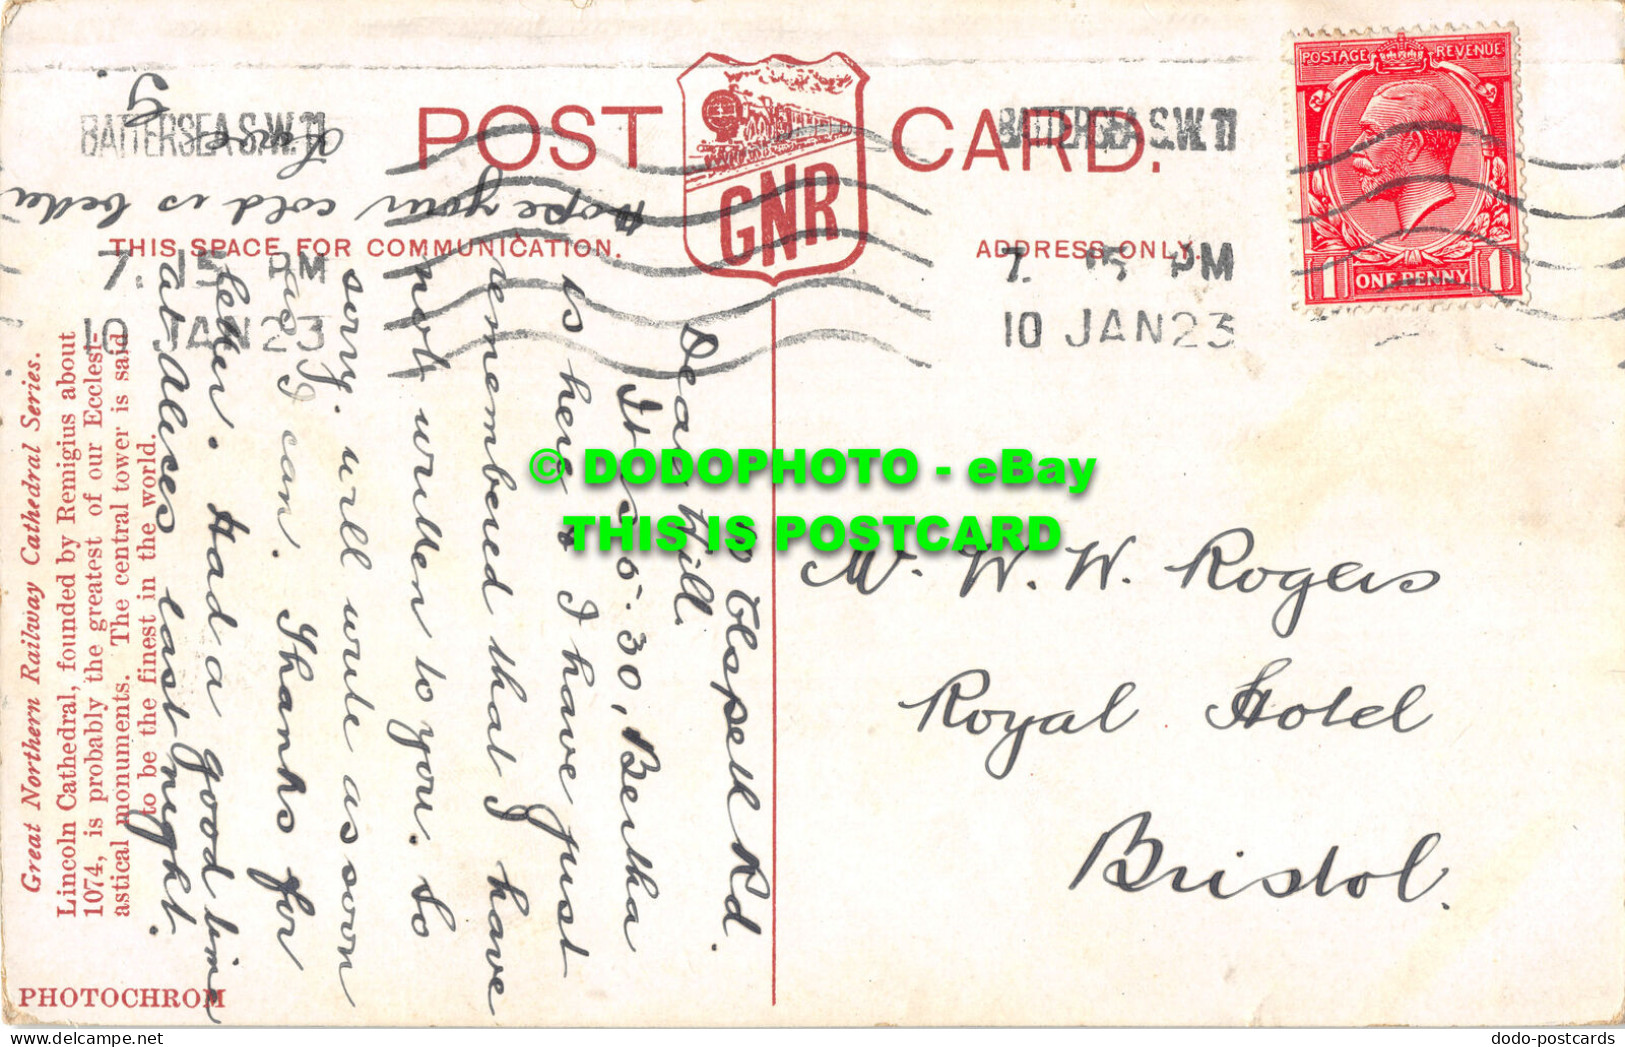 POST CARD.
GNR
POSTAGE REVENUE
1 ONE PENNY 1
BATTERSEA S.W.11
7. 15 PM
10 JAN 23
BATTERSEA S.W.11
7. 15 PM
10 JAN 23
THIS SPACE FOR COMMUNICATION.
ADDRESS ONLY.
Great Northern Railway Cathedral Series.
Lincoln Cathedral, founded by Remigius about
1074, is probably the greatest of our Ecclesi-
astical monuments. The central tower is said
to be the finest in the world.
PHOTOCHROM
Rd.
Dear Will.
It is 5.30, Bertha
is here & I have just
remembered that I have
not written to you. So
sorry. will write as soon
as I can. Thanks for
letter. Had a good time
at Alices last night.
Hope your cold is better
Love
G
Mr. W. W. Rogers
Royal Hotel
Bristol.
© DODOPHOTO - eBay
THIS IS POSTCARD
dodo-postcards